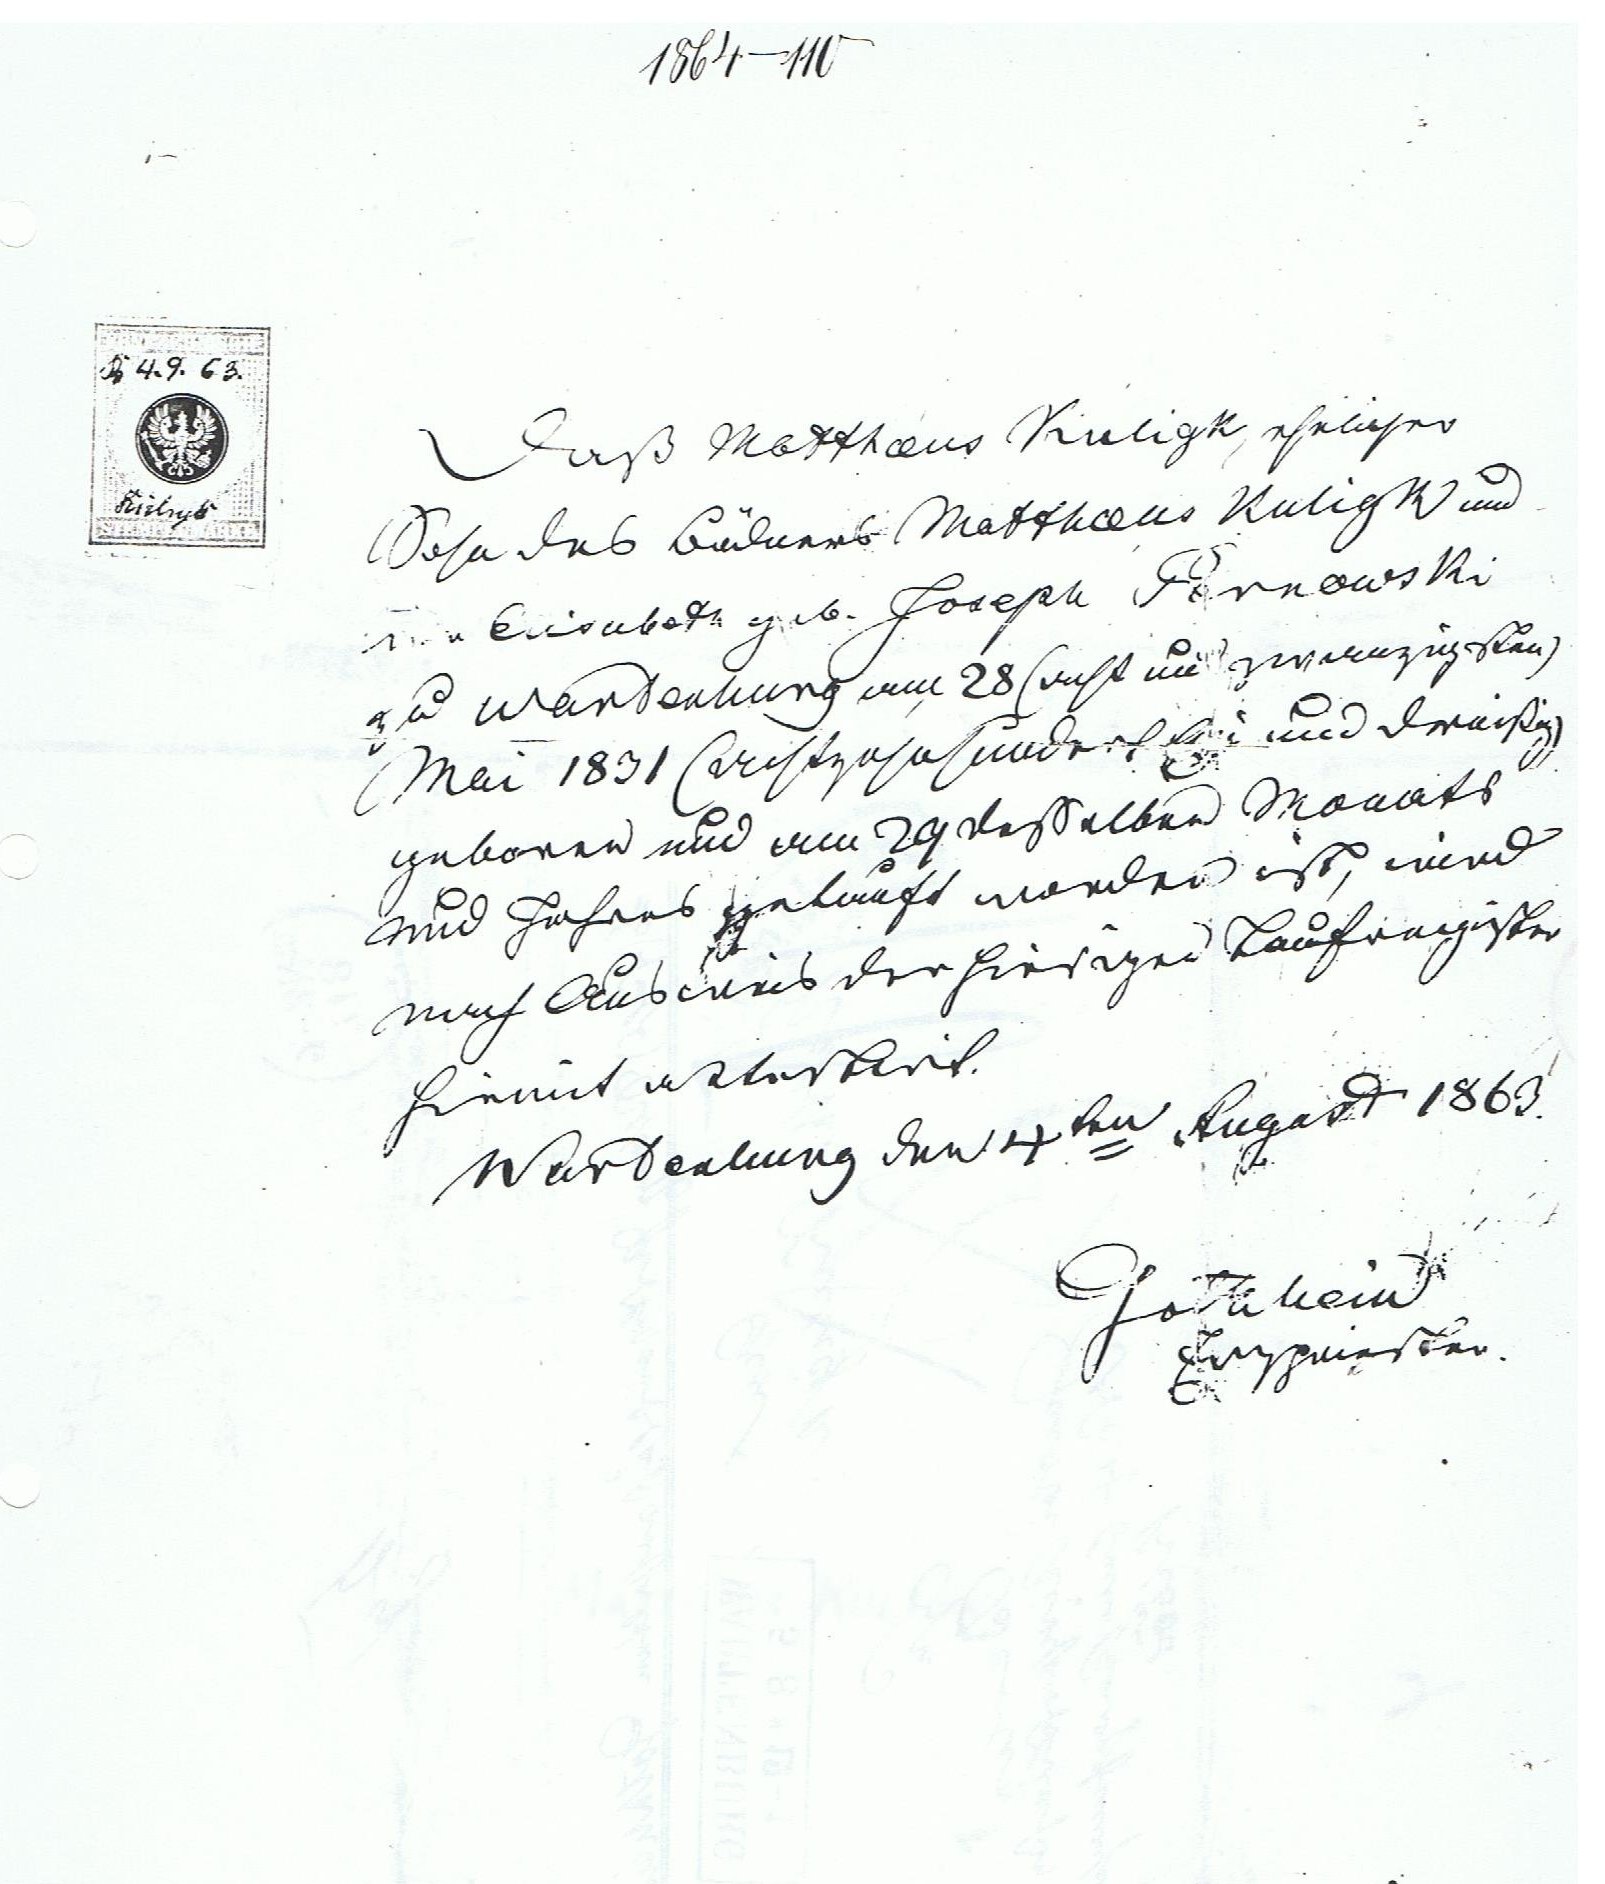 1864-110
4.9.63.
Daß Matthaeus Kuligk, ehelicher
Sohn des Büdners Matthaeus Kuligk und
Elisabeth geb. Joseph
zu Wartenburg am 28 (acht und zwanzigsten)
Mai 1831 (achtzehnhundert ein und dreißig)
geboren und am 29 desselben Monats
und Jahres getauft worden ist, wird
nach Ausweis der hiesigen Taufregister
hiemit attestirt.
Wartenburg den 4ten August 1863.
Erzpriester.